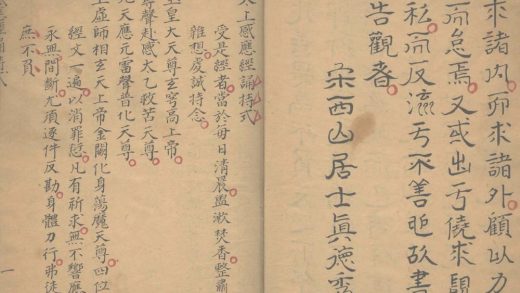 求諸內而求諸外顧以力
而怠焉又或出于僥求覬
私而反流于不善也故書
告觀者
宋西山居士真德秀
太上感應經誦持式
受是經者當於每日清晨盥漱焚香整肅
雜想虔誠持念
玉皇大天尊玄穹高上帝
尋聲赴感太乙救苦天尊
九天應元雷聲普化天尊
上虛師相玄天上帝金闕化身蕩魔天尊四位
經文一遍以消罪愆凡有祈求無不響應
永無間斷尤須逐件反勘身體力行弗徒
庶不負
一